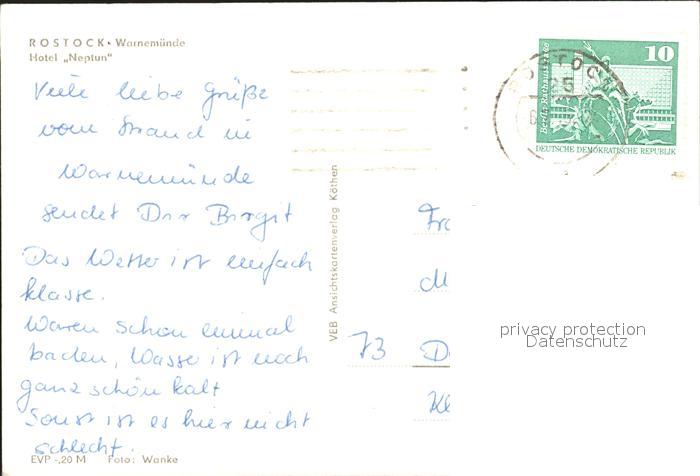 ROSTOCK - Warnemünde
Hotel „Neptun"
Viele liebe Grüße
vom Strand in
Warnemünde
sendet Dir Birgit
Das Wetter ist einfach
klasse.
Waren schon einmal
baden, Wasser ist noch
ganz schön kalt
Sonst ist es hier nicht
schlecht.
EVP -,20 M Foto: Wanke
VEB Ansichtskartenverlag Köthen
ROSTOCK
25
10
Berlin-Rathausstraße
DEUTSCHE DEMOKRATISCHE REPUBLIK
Fr
M
73 D
Kl
privacy protection
Datenschutz